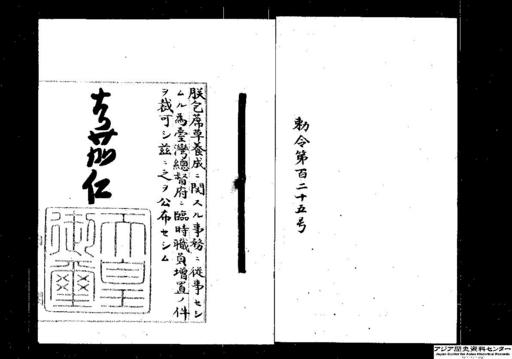 勅令第百二十五号
朕蓆草養成ニ関スル事務ニ従事セシ
ムル為臺灣總督府ニ臨時職員増置ノ件
ヲ裁可シ茲ニ之ヲ公布セシム
嘉仁
天皇
御璽
アジア歴史資料センター
Japan Center for Asian Historical Records